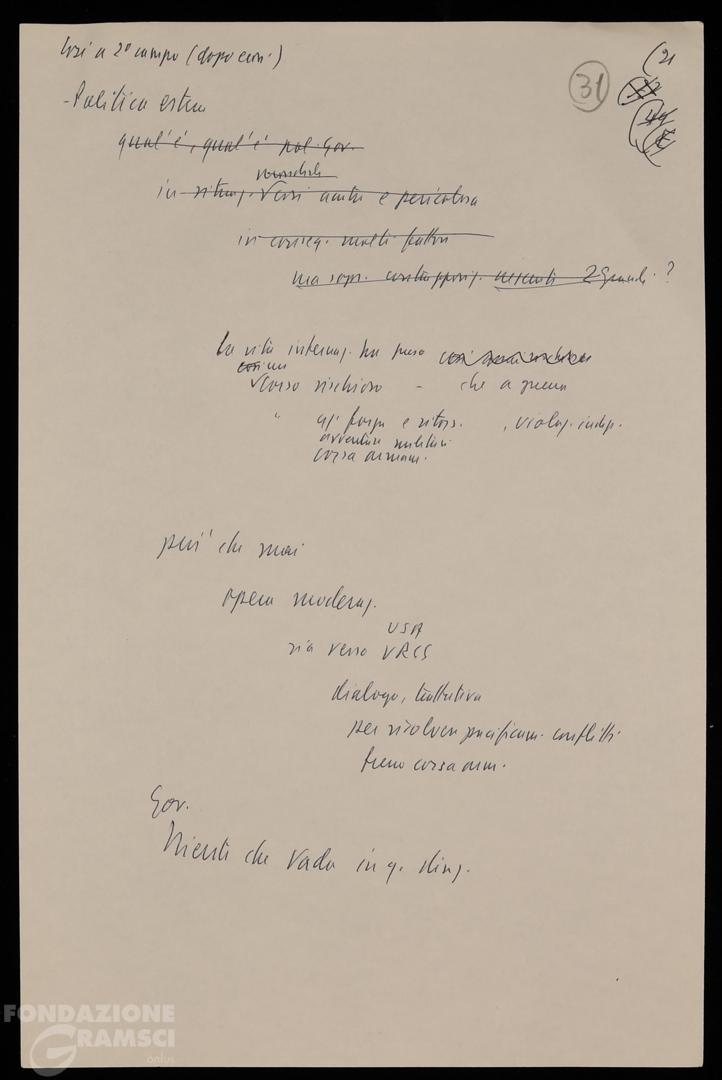 Così a 2º campo (dopo econ.)
31
(21
- Politica estera
qual'è, qual'è pol. Gov.
in situaz. così acuta e pericolosa
in conseg. molti fattori
ma sopr. contrapposiz. crescente 2 Grandi ?
La vita internaz. ha preso così
corso rischioso - che a guerra
" uso forza e ritors. , violaz. indip.
avventure militari
corsa armam.
più che mai
opera moderaz.
USA
sia verso URSS
dialogo, trattativa
per risolvere pacificam. conflitti
freno corsa arm.
Gov.
Niente che vada in q. direz.
FONDAZIONE
GRAMSCI
onlus